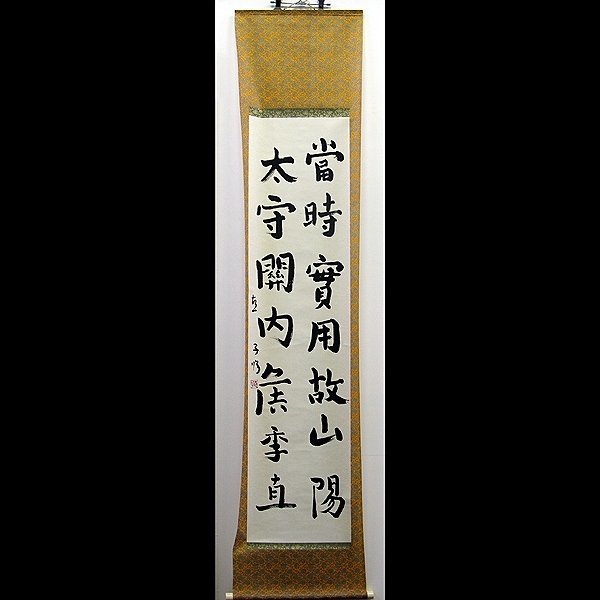 當時實用故山陽
太守關內侯季直